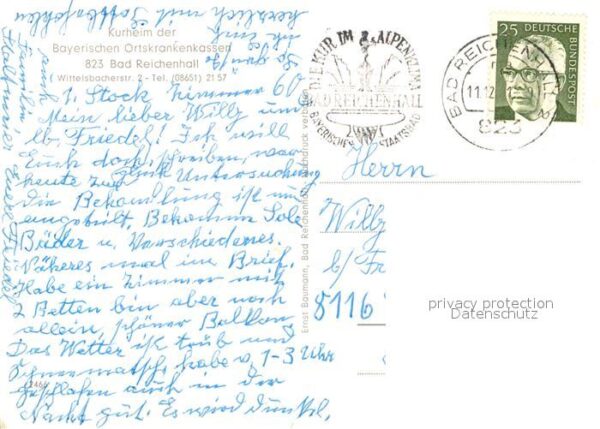 Kurheim der
Bayerischen Ortskrankenkassen
823 Bad Reichenhall
Wittelsbacherstr. 2 - Tel. (08651) 21 57
1. Stock Zimmer 60
Mein lieber Willy und
lb. Friedel! Ich will
Euch doch schreiben, war
heute zur Untersuchung
die Behandlung ist nun
Bekomme Sole
Bäder u. Verschiedenes.
Näheres mal im Brief.
Habe ein Zimmer mit
2 Betten bin aber noch
allein, schöner Balkon
Das Wetter ist trüb und
Schneematsch, habe v. 1-3 Uhr
geschlafen auch in der
Nacht gut. Es wird dunkel.
herzlich
Familie
2466
Ernst Baumann, Bad Reichenhall, Nachdruck verboten
DIE KUR IM ALPENKLIMA
BAD REICHENHALL
BAYERISCHES STAATSBAD
BAD REICHENHALL
11.12
823
25
DEUTSCHE
BUNDESPOST
Herrn
Willy
b/ Fr
8116
privacy protection
Datenschutz